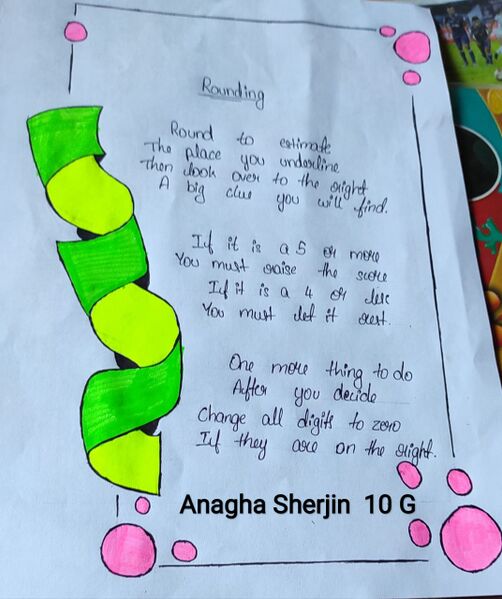 Rounding
Round to estimate
The place you underline
Then look over to the right
A big clue you will find.
If it is a 5 or more
You must raise the score
If it is a 4 or less
You must let it rest.
One more thing to do
After you decide
Change all digits to zero
If they are on the right.
Anagha Sherjin 10 G